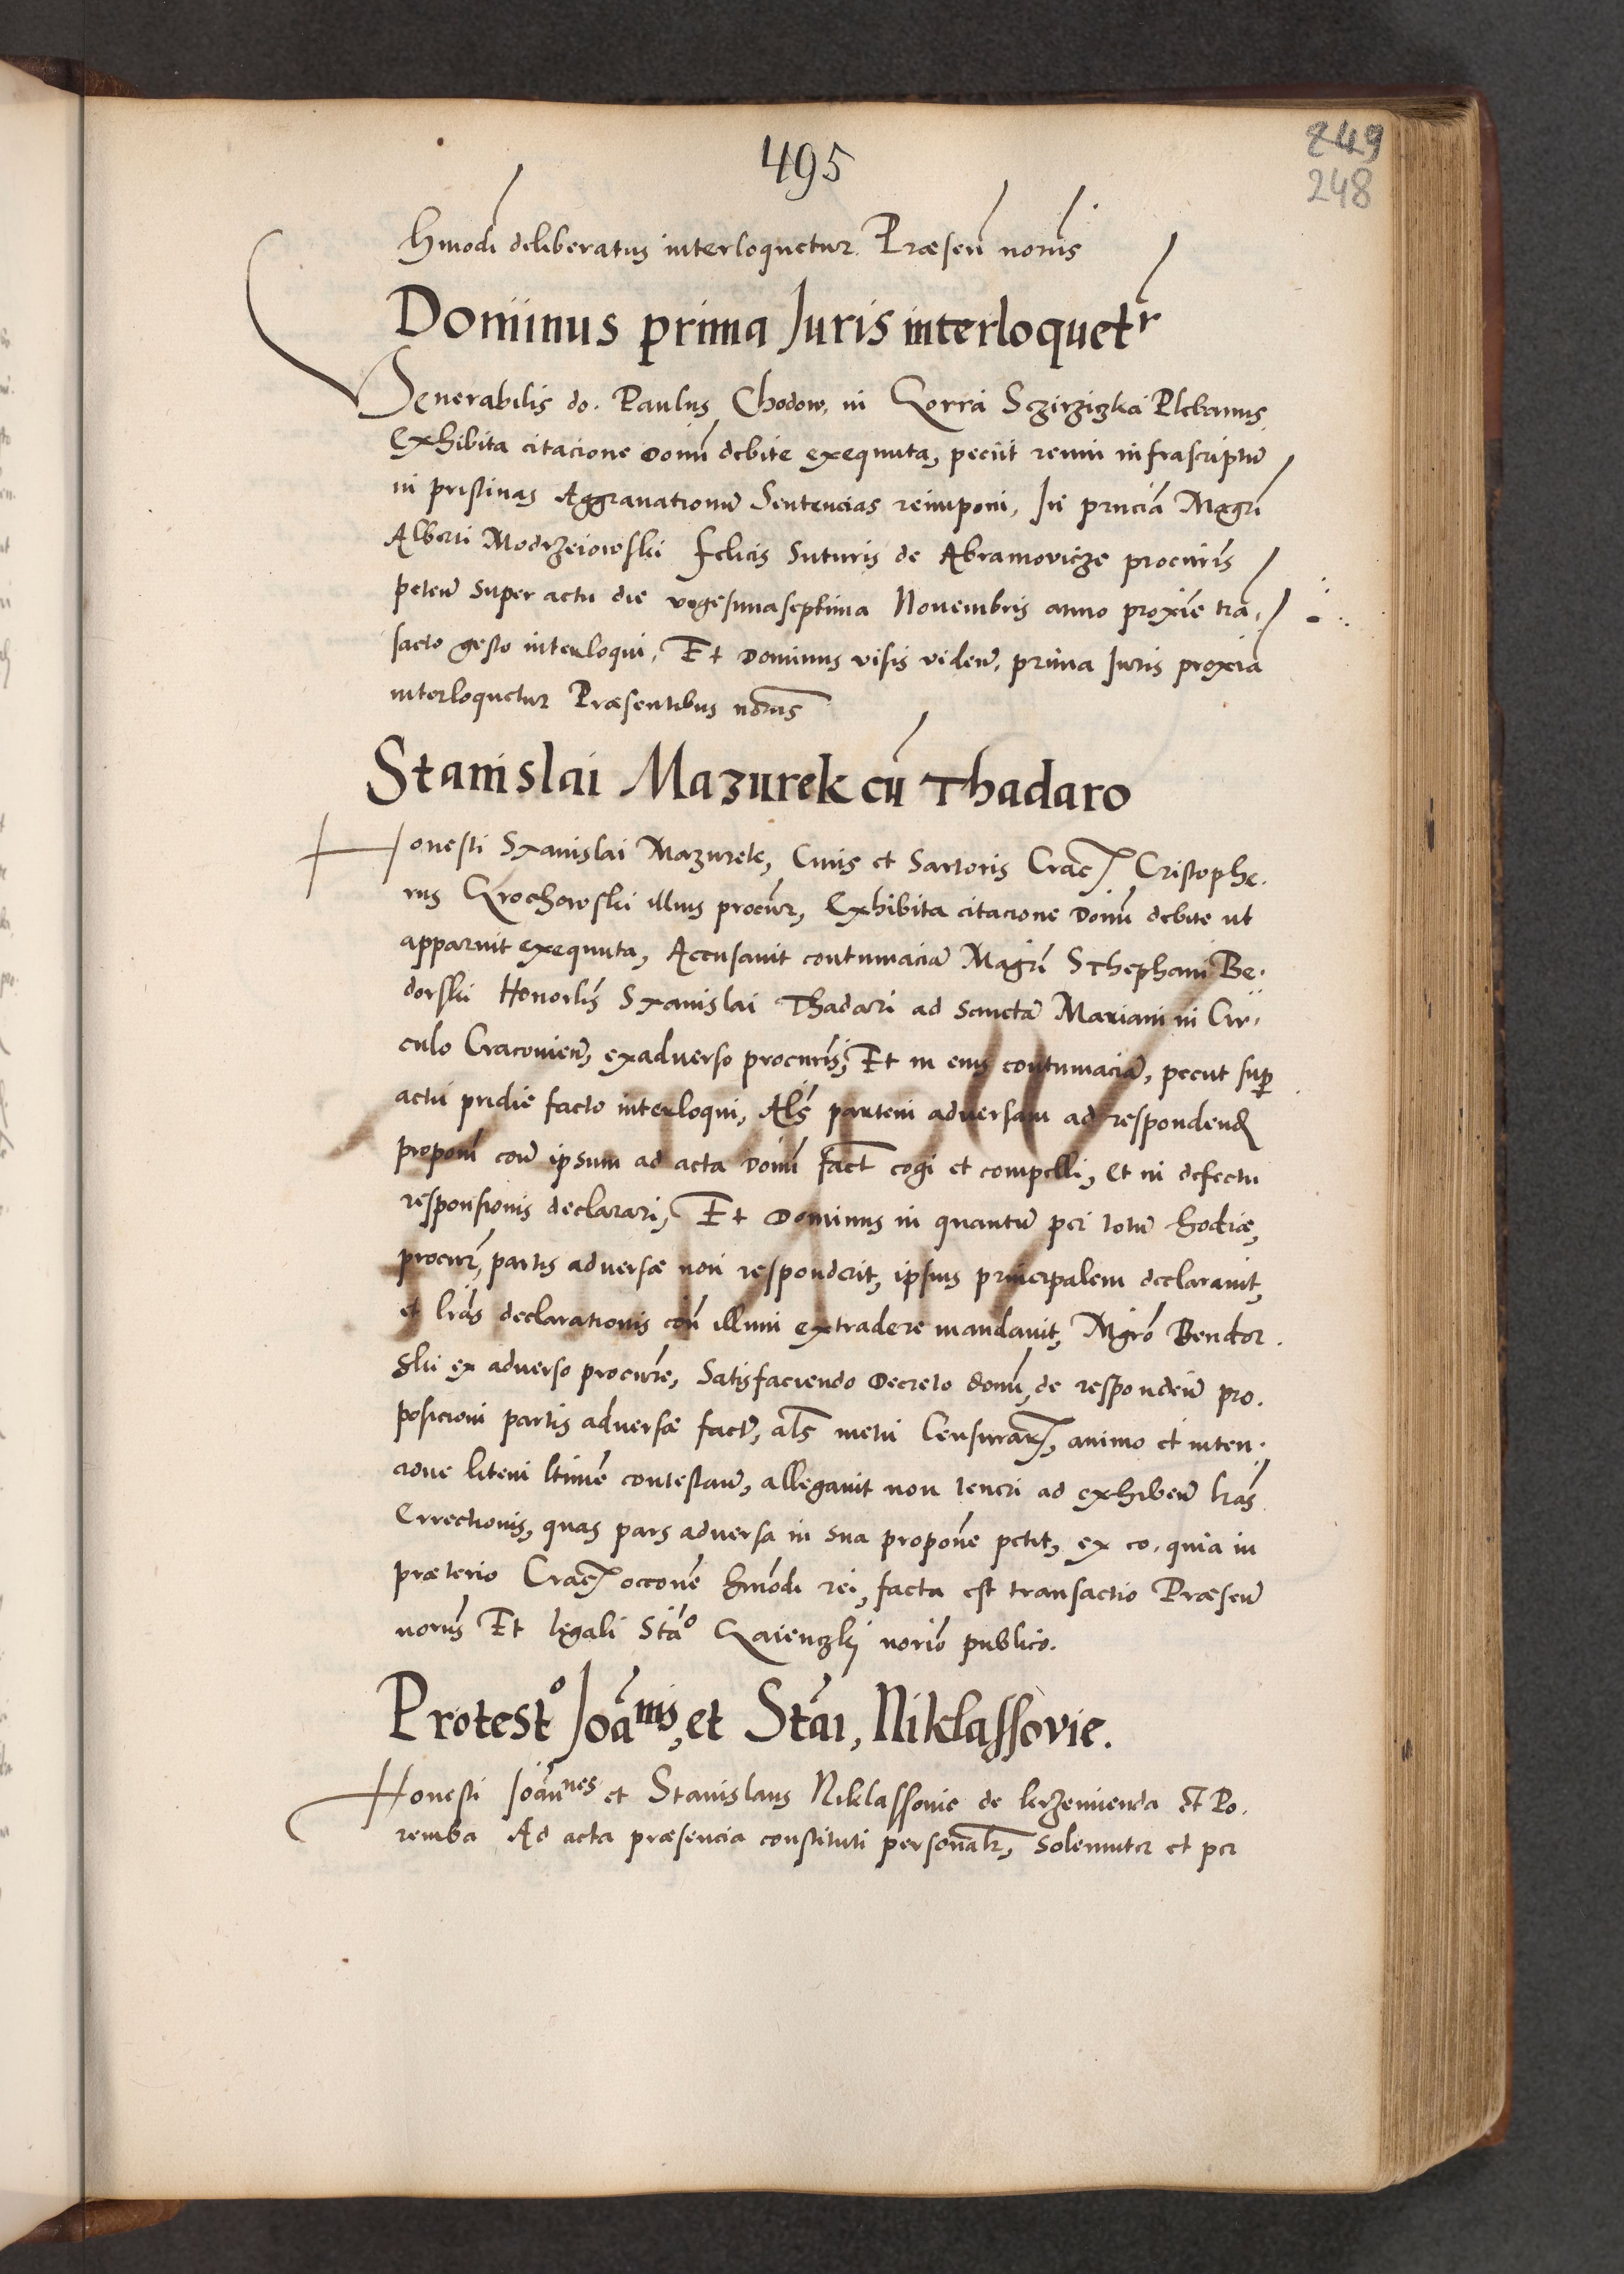 495
249
248
Hmodi deliberatus interloquetur. Præsen̄ norijs
Dominus prima Juris interloquetr
Venerabilis do. Paulus Chodow, in Gorra Sczirziczka Plebanus
Exhibita citacione Domi debite exequuta, peciit reum infrascriptū
in pristinas Aggrauationū Sentencias reimponi, In pnciā Magri
Alberti Modrzeiowski felicis Sutoris de Abramovicze procūris
peten̄ super actu die vigesimaseptima Nouembris anno proxīe trā,
sacto gesto interloqui, Et Dominus visis viden̄, prima Juris proxīa
interloquetur Præsentibus noriis
Stanislai Mazurek cū Thadaro
Honesti Stanislai Mazurek, Ciuis et Sartoris Crac̄ Cristophe.
rus Grochowski illius procūr, Exhibita citacione Domi debite ut
apparuit exequuta, Accusauit contumaciā Magri Stephani Be.
dorski Honorlis Stanislai Thadari ad Sanctā Mariam in Cir,
culo Cracouien̄, exaduerso procūris, Et in eius contumaciā, peciit sup
actu pridie facto interloqui, Als partem aduersam ad respondend
propoñi coñ ipsum ad acta Domi fact cogi et compelli, et in defectu
responsionis declarari, Et Dominus in quantū per totū hodie,
procūr, partis aduersæ non responderit, ipsius principalem declarauit,
et lrās declarationis coñ illum extradere mandauit, Mgrō Bendor.
ski ex aduerso procūre, Satisfaciendo Decreto domi, de responden̄ pro.
posicioni partis aduersæ factæ, als metu Censurar, animo et inten.
cione litem ltimē contestan̄, allegauit non teneri ad exhiben̄ lrās
Errectionis, quas pars aduersa in sua propone petit, ex eo, quia in
præterio Crac̄ occone hmōdi rei, facta est transactio Præsen̄
noriis Et legali Stāo Gaienczkj noriō publico.
Protesto Joānis, et Stāi, Niklassovie.
Honesti Joānnes et Stanislaus Niklassouie de kerzemienda et Po.
remba Ad acta præsencia constituti personalr, Solenniter et per